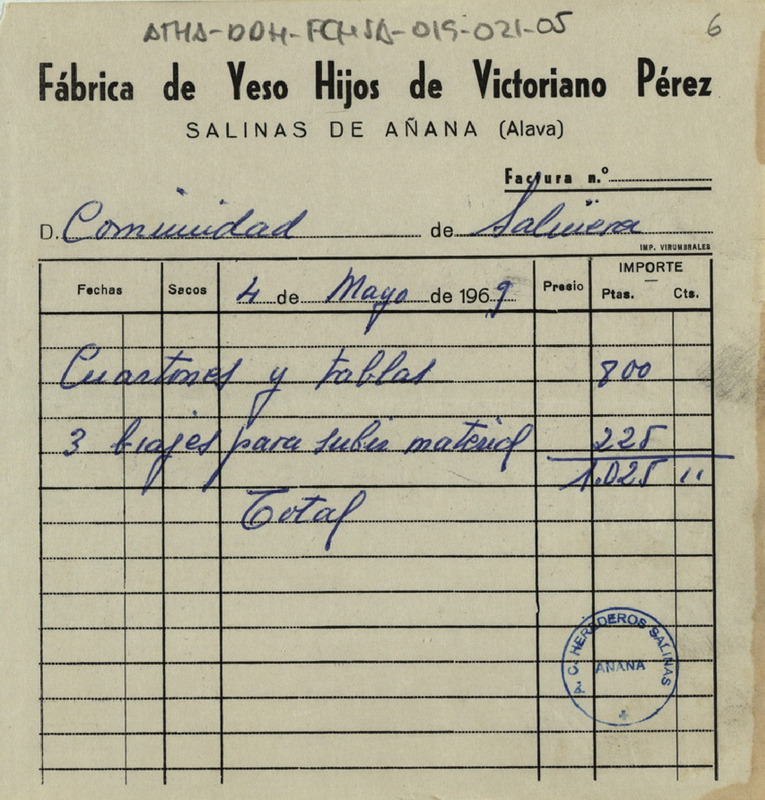 ATHA-DDH-FCHSA-019-021-05
6
Fábrica de Yeso Hijos de Victoriano Pérez
SALINAS DE AÑANA (Alava)
Factura n.º
D. Comunidad de Salinera
IMP. VIRUMBRALES
Fechas Sacos 4 de Mayo de 1969 Presio IMPORTE
Ptas. Cts.
Cuartones y tablas 800
3 biajes para subir material 225
1.025 "
Total
A. C. HEREDEROS SALINAS
AÑANA